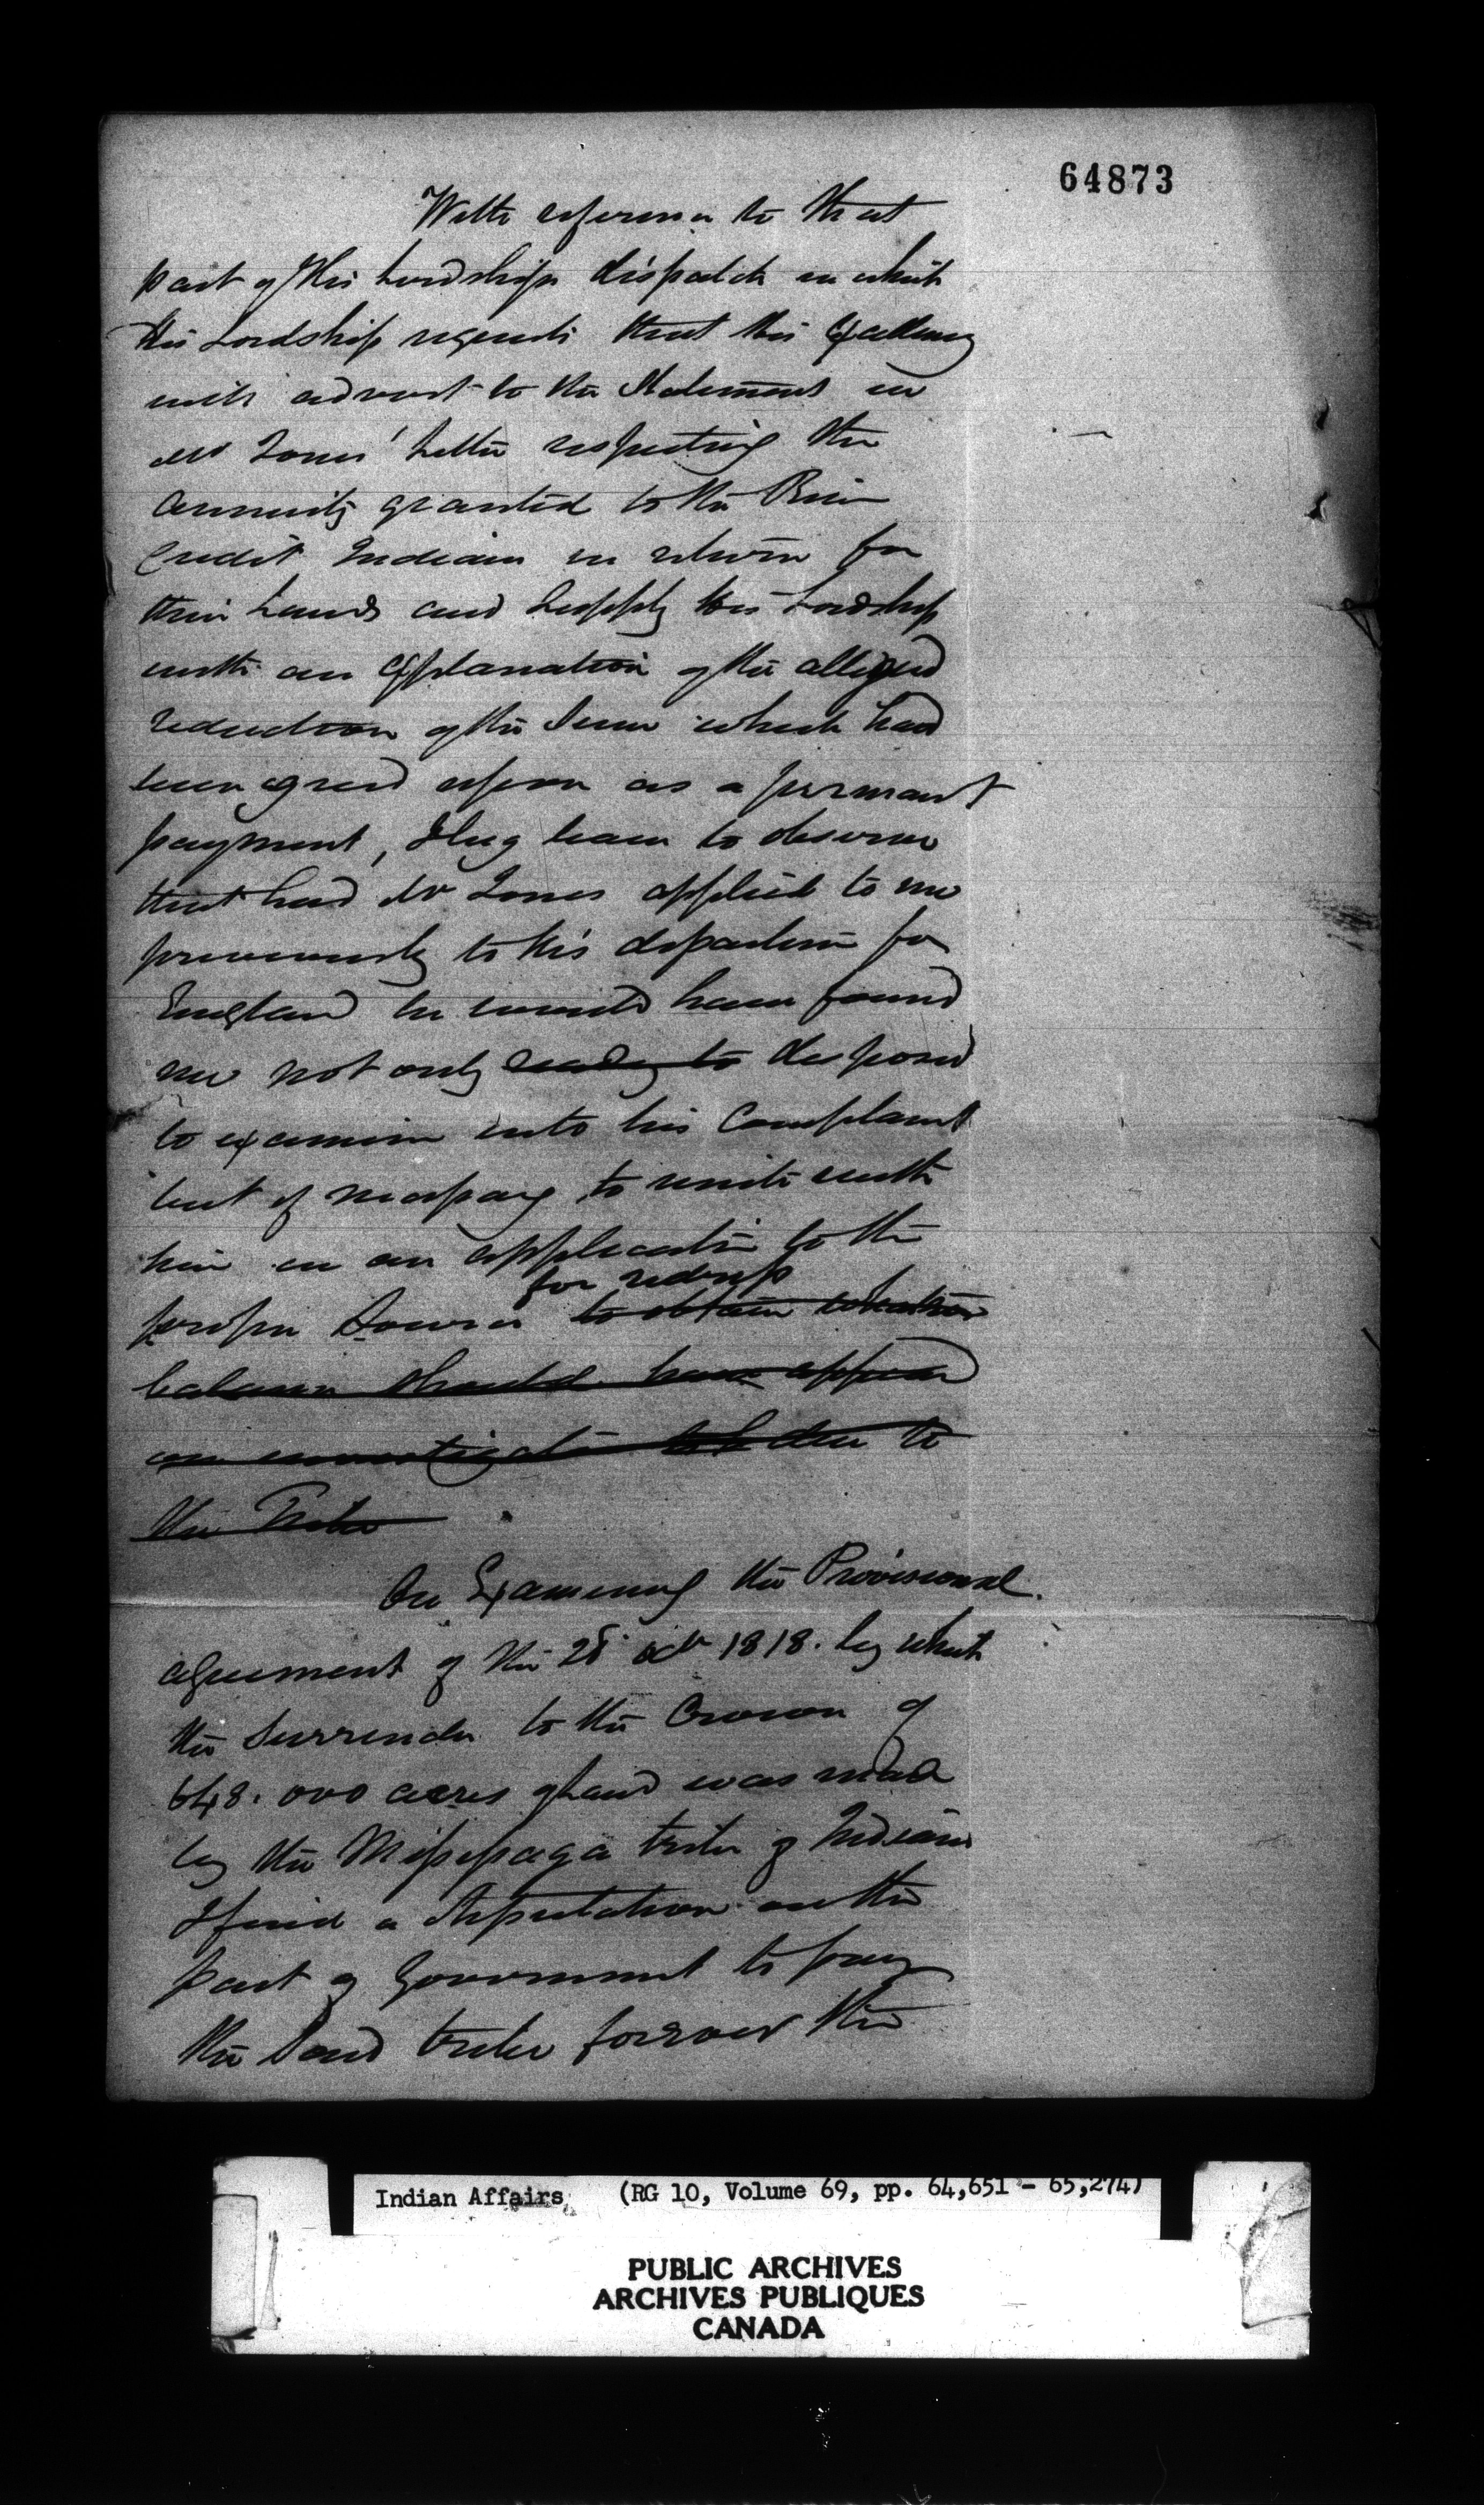 64873
With reference to that
part of His Lordships dispatch in which
His Lordship requests that His Excellency
will advert to the Statement in
Mr Jones' Letter respecting the
annuity granted to the River
Credit Indians in return for
their Lands and supply His Lordship
with an Explanation of the alleged
reduction of the Sum which had
been agreed upon as a permant
payment, I beg leave to observe
that had Mr Jones applied to me
previously to his departure for
England he would have found
me not only ready to disposed
to examine into his Complaint
but if necessary to unite with
him in an application to the
for redress
proper Source to obtain whatever
balance should have appeared
on investigation to be due to
the Tribe
On Examining the Provisional
agreement of the 28 Octr 1818. by which
the Surrender to the Crown of
648.000 acres of Land was made
by the Missisaga tribe of Indians
I find a Stipulation on the
part of Government to pay
the Said tribe forever the
Indian Affairs (RG 10, Volume 69, pp. 64,651 - 65,274)
PUBLIC ARCHIVES
ARCHIVES PUBLIQUES
CANADA